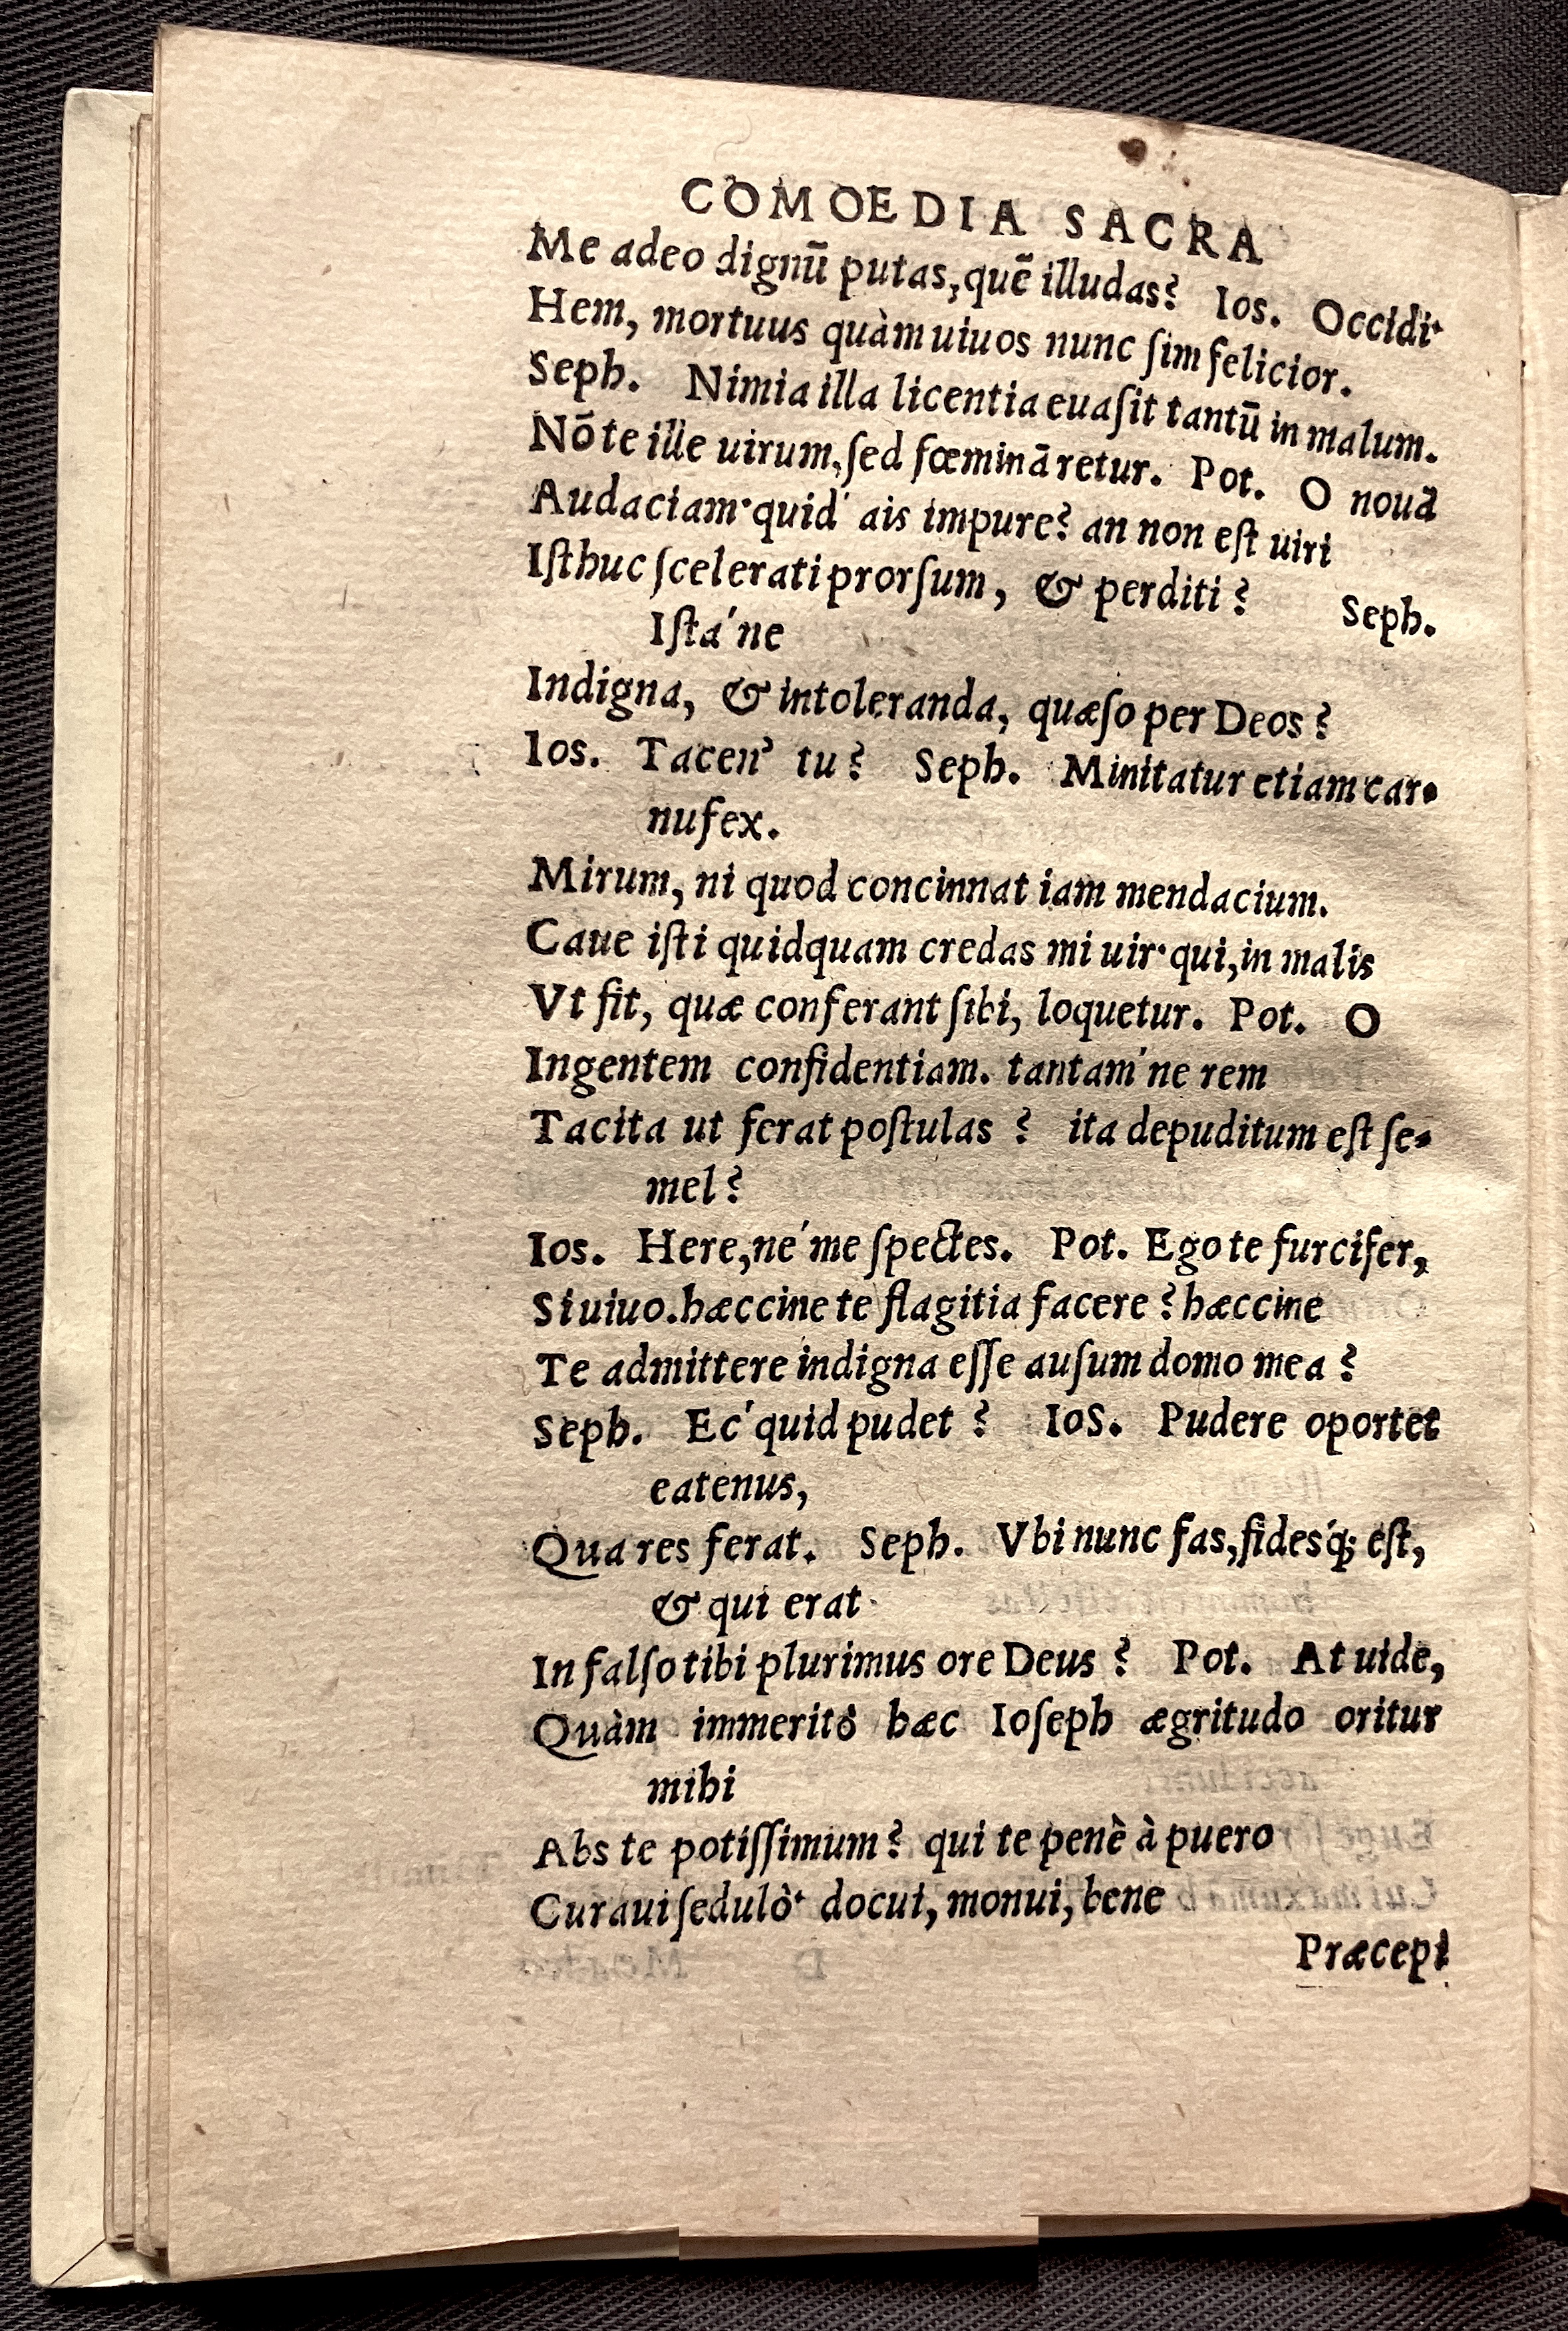 COMOEDIA SACRA
Me adeo dignū putas, quē illudas? Ios. Occidi·
Hem, mortuus quàm uiuos nunc ſim felicior.
Seph. Nimia illa licentia euaſit tantū in malum.
Nō te ille uirum, ſed fœminā retur. Pot. O nouā
Audaciam· quid' ais impure? an non eſt uiri
Iſthuc ſcelerati prorſum, & perditi? Seph.
Iſta'ne
Indigna, & intoleranda, quæſo per Deos?
Ios. Tacen' tu? Seph. Minitatur etiam car-
nufex.
Mirum, ni quod concinnat iam mendacium.
Caue iſti quidquam credas mi uir· qui, in malis
Vt fit, quæ conferant ſibi, loquetur. Pot. O
Ingentem confidentiam. tantam'ne rem
Tacita ut ferat poſtulas? ita depuditum eſt ſe-
mel?
Ios. Here, ne'me ſpectes. Pot. Ego te furcifer,
Si uiuo. hæccine te flagitia facere? hæccine
Te admittere indigna eſſe auſum domo mea?
Seph. Ec'quid pudet? IoS. Pudere oportet
eatenus,
Qua res ferat. Seph. Vbi nunc fas, fides'q; eſt,
& qui erat·
In falſo tibi plurimus ore Deus? Pot. At uide,
Quàm immeritò hæc Ioſeph ægritudo oritur
mihi
Abs te potiſſimum? qui te penè à puero
Curaui ſedulò· docui, monui, bene
Præcepi